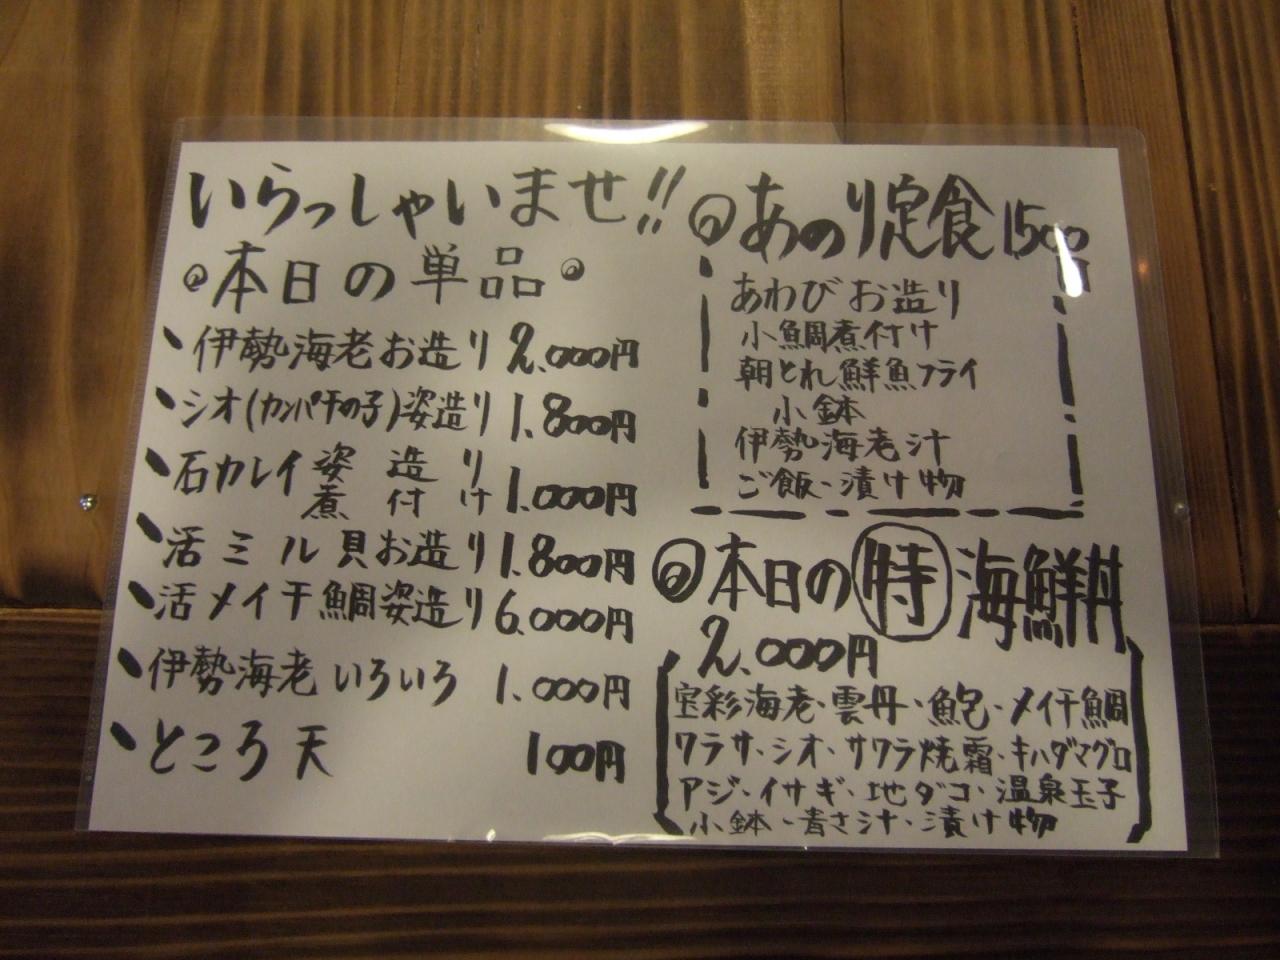 いらっしゃいませ!!
本日の単品
伊勢海老お造り 2.000円
シオ(カンパチの子)姿造り 1.800円
石カレイ 姿造り 煮付け 1.000円
活ミル貝お造り 1.800円
活メイチ鯛姿造り 6.000円
伊勢海老いろいろ 1.000円
ところ天 100円
あのり定食 1500円
あわびお造り
小鯛煮付け
朝とれ鮮魚フライ
小鉢
伊勢海老汁
ご飯・漬け物
本日の特海鮮丼
2.000円
宝彩海老・雲丹・鮑・メイチ鯛
ワラサ・シオ・サワラ焼霜・キハダマグロ
アジ・イサギ・地ダコ・温泉玉子
小鉢・青さ汁・漬け物